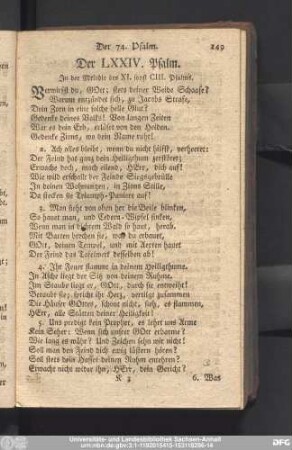 Der 74. Psalm. 149
Der LXXIV. Psalm.
In der Melodie des XI. und CIII. Psalms.
Vermirfst du, GOtt; stets deiner Weide Schaafe?
Warum entzündet sich, zu Jacobs Strafe,
Dein Zorn in eine solche helle Glut?
Gedenke deines Volks! Von langen Zeiten
War es dein Erb, erlöset von den Heiden.
Gedenke Zions, wo dein Name ruht.
2. Ach alles bleibt, wenn du nicht hilfst, verheeret:
Der Feind hat ganz dein Heiligthum zerstöret;
Erwache doch, mach eilend, HErr, dich auf!
Wie wild erschallt der Feinde Siegsgebrülle
In deinen Wohnungen, in Zions Stille,
Da stecken sie Triumph-Paniere auf!
3. Man sieht von oben her die Beile blinken,
So hauet man, und Cedern-Wipfel sinken,
Wenn man in Wald so haut, herab.
Mit Barten herschen sie, was du erbauet,
GOtt, deinen Tempel, und mit Aexten hauet
Der Feind das Tafelwerk desselben ab!
4. Ihr Feuer flammt in deinem Heiligthume,
In Asche liegt der Sitz von deinem Ruhme,
Im Staube liegt er, GOtt, durch sie entweiht!
Beraubt sie; spricht ihr Herz, vertilgt zusammen
Die Häuser GOttes, schont nicht, sieh, es flammen,
HErr, alle Stätten deiner Heiligkeit!
5. Uns predigt kein Prophet, es lehrt uns Arme
Kein Seher: Wenn sich unser GOtt erbarme?
Wie lang es währ? Und Zeichen sehn wir nicht!
Soll man den Feind dich ewig lästern hören?
Soll stets dein Hasser deinen Namen entehren?
Erwacht nicht wider ihn, HErr, dein Gericht?
K 3 6. Was
Universitäts- und Landesbibliothek Sachsen-Anhalt
DFG